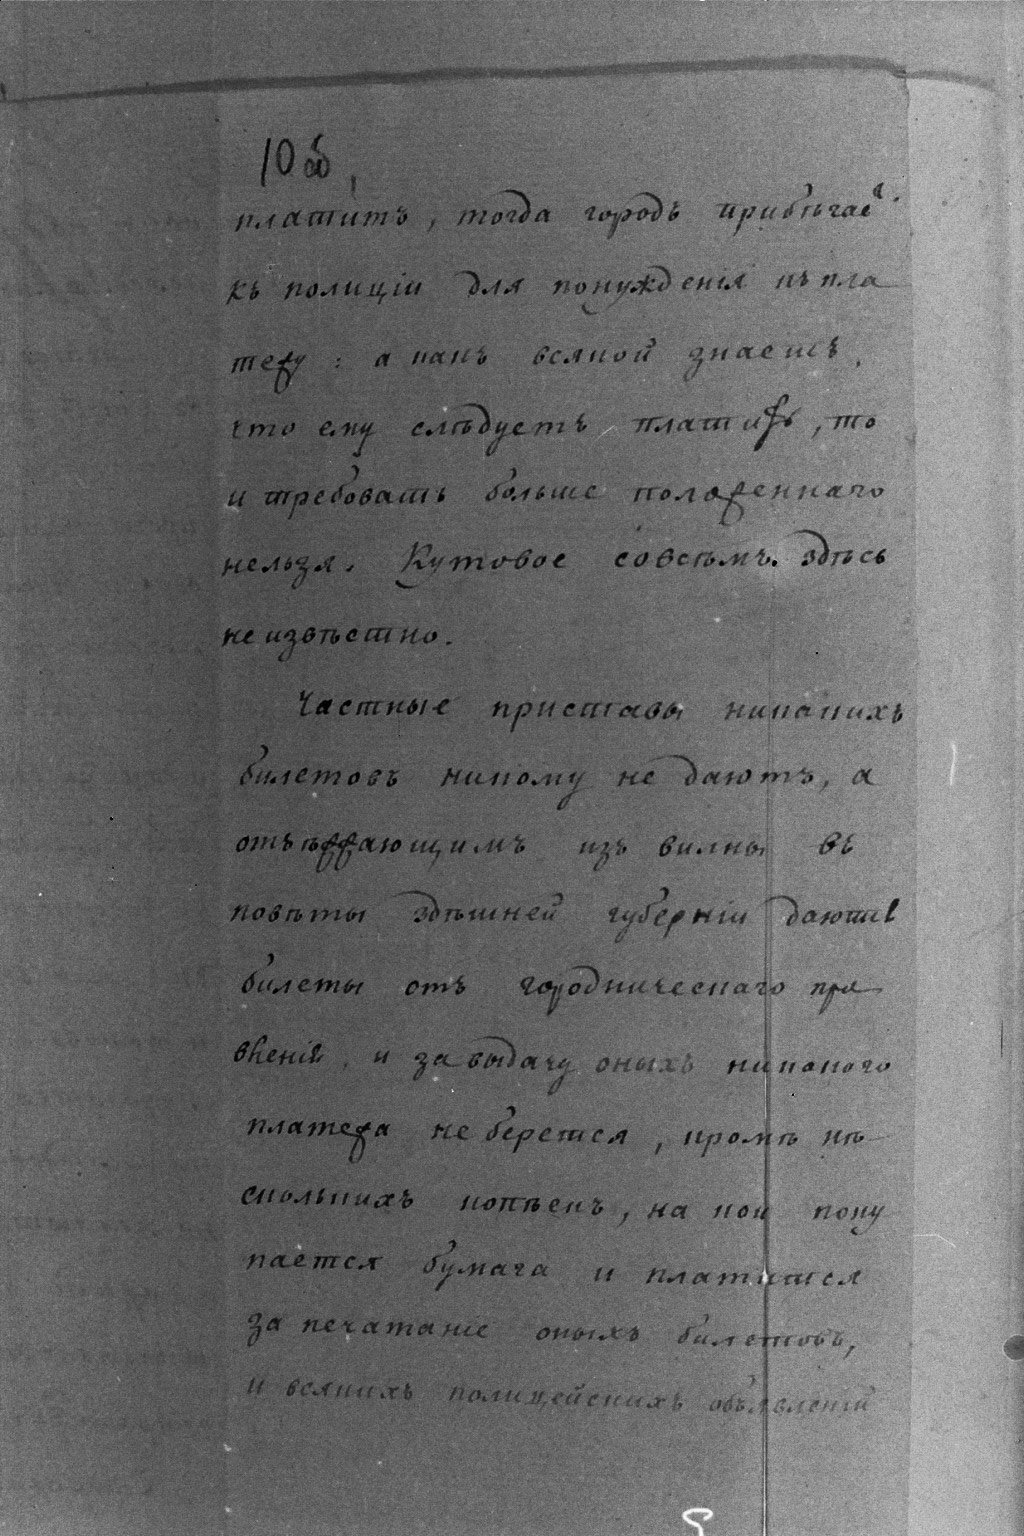 10об
платитъ, тогда городъ прибѣгаетъ
къ полиціи для понужденія къ пла
тежу: а какъ всякой знаетъ,
что ему слѣдуетъ платить, то
и требовать больше положеннаго
нельзя. Кутовое совсѣмъ здѣсь
не извѣстно.
Частные приставы никакихъ
билетовъ никому не даютъ, а
отъѣжжающимъ изъ вилны въ
повѣты здѣшней губерніи даютъ
билеты отъ городническаго пра
вленія, и за выдачу оныхъ никакого
платежа не берется, кромѣ нѣ
сколькихъ копѣекъ, на кои поку
пается бумага и платится
за печатаніе оныхъ билетовъ,
и всякихъ полицейскихъ объявленій